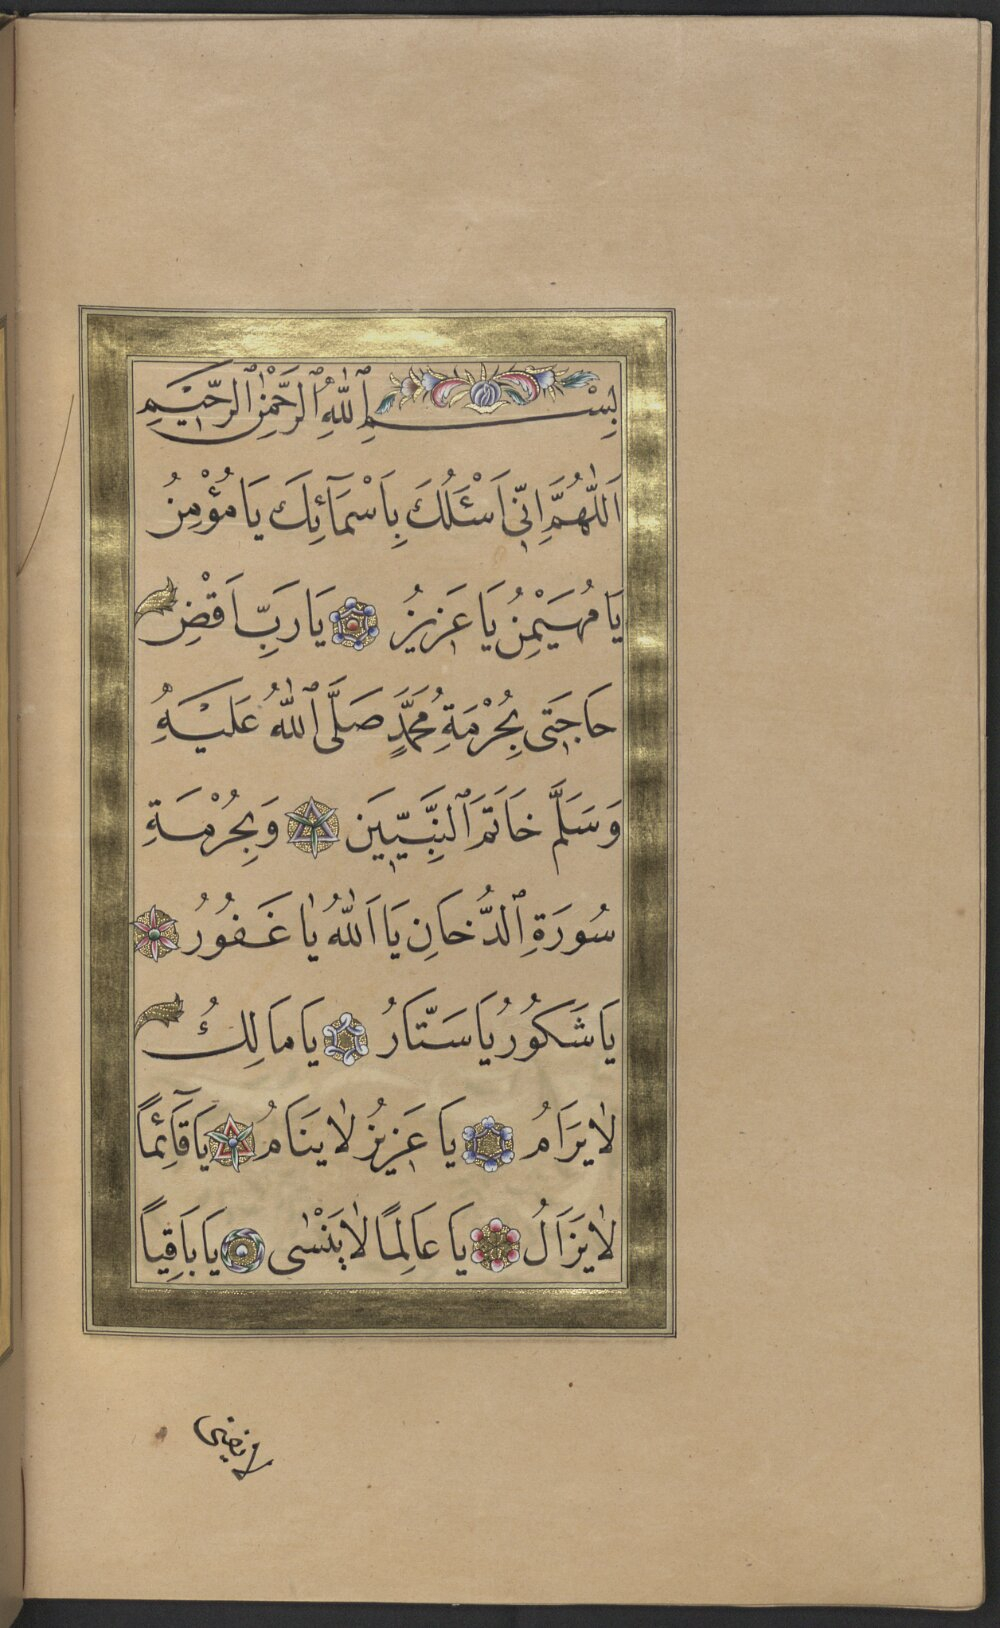 بِسْمِ ٱللّٰهِ ٱلرَّحْمٰنِ ٱلرَّحِيْمِ
اَللّٰهُمَّ اِنّٖى اَسْئَلُكَ بِاَسْمَآئِكَ يَا مُؤْمِنُ
يَا مُهَيْمِنُ يَا عَزٖيزُ يَا رَبِّ اَقْضِ
حَاجَتٖى بِحُرْمَةِ مُحَمَّدٍ صَلَّى ٱللّٰهُ عَلَيْهِ
وَسَلَّمَ خَاتَمَ ٱلنَّبِيّٖينَ وَبِحُرْمَةِ
سُورَةِ ٱلدُّخَانِ يَا اَللّٰهُ يَا غَفُورُ
يَا شَكُورُ يَا سَتَّارُ يَا مَالِكُ
لَا يَرَامُ يَا عَزٖيزُ لَا يَنَامُ يَا قَآئِمًا
لَا يَزَالُ يَا عَالِمًا لَا يَنْسٰى يَا بَاقِيًا
لا نقضى